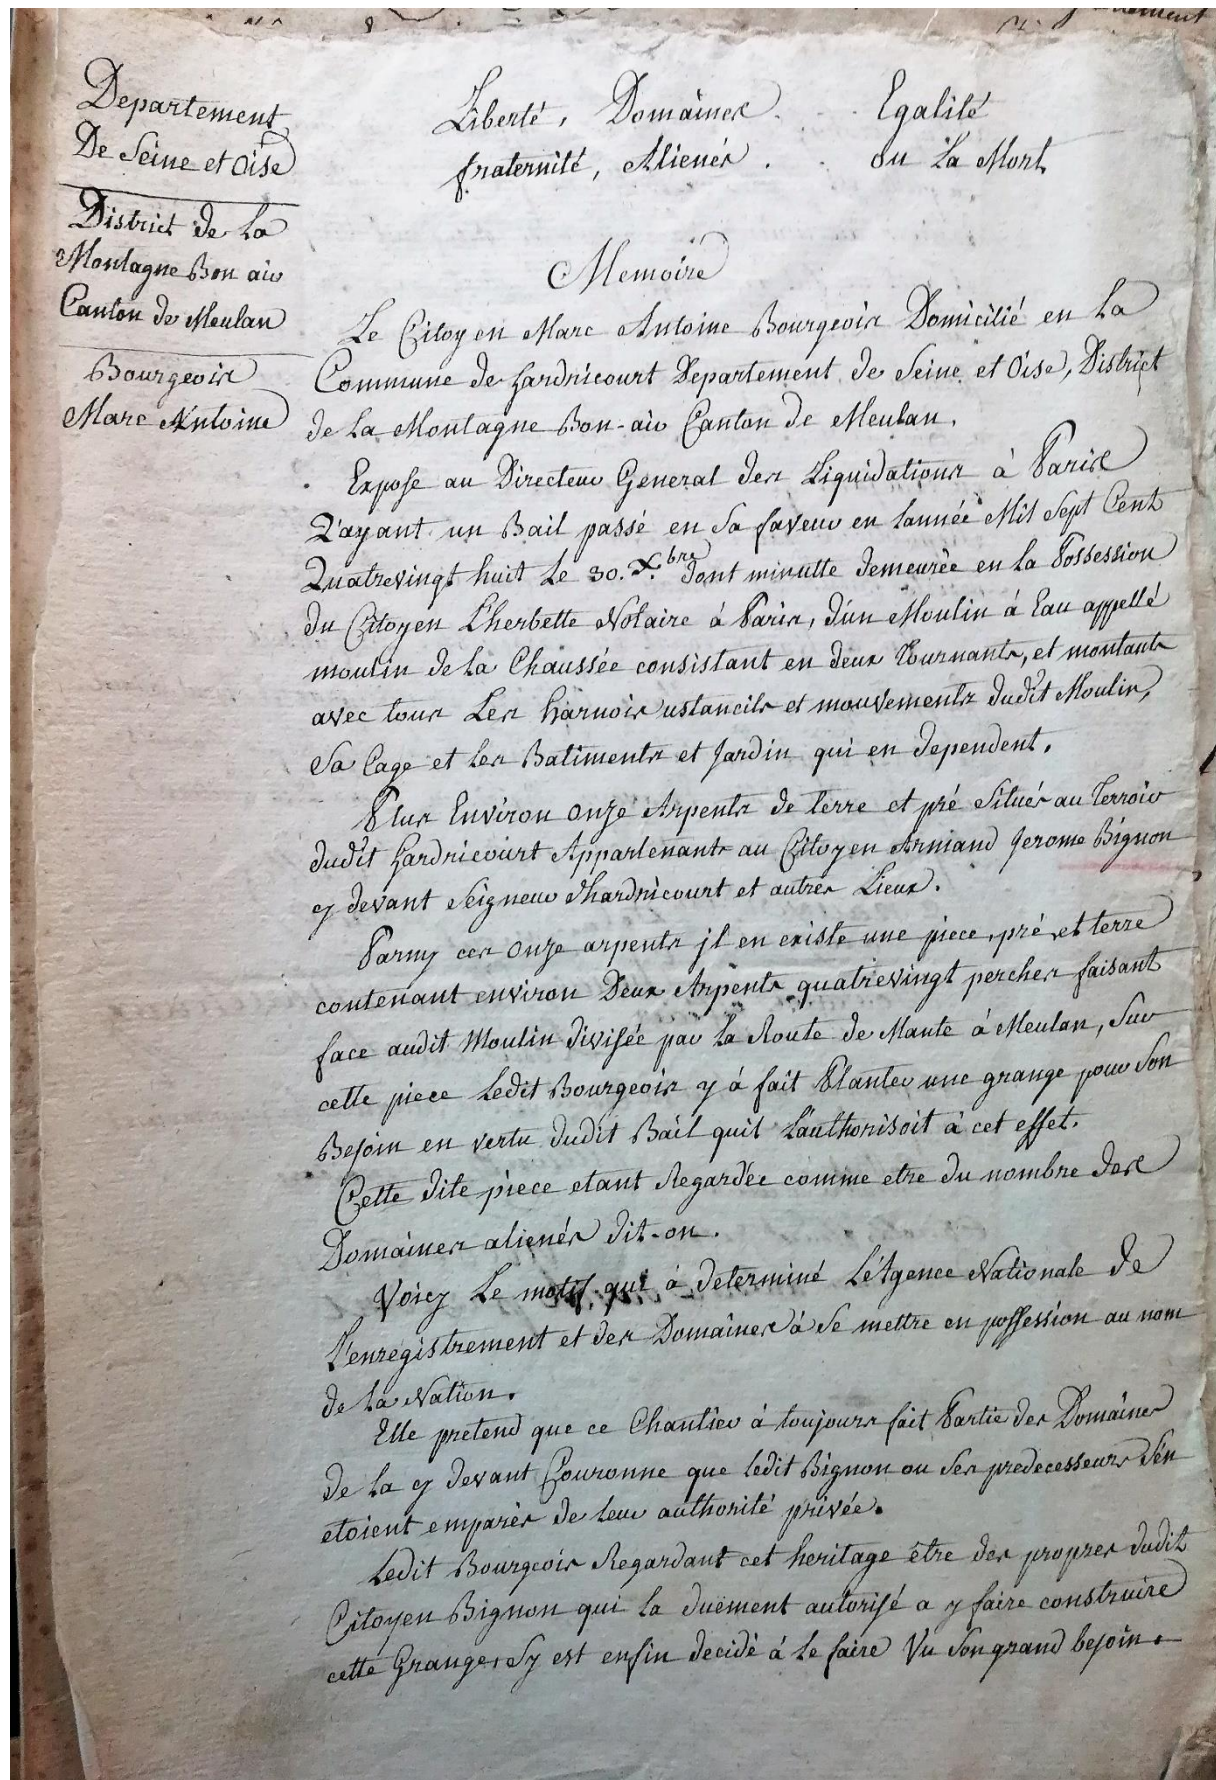 Departement
De Seine et Oise
District de La
Montagne Bon air
Canton de Meulan
Bourgeois
Marc Antoine
Liberté, Domaines . . Egalité
fraternité, Aliénés . . ou La Mort
Memoire
Le Citoyen Marc Antoine Bourgeois Domicilié en La
Commune de hardricourt Departement de Seine et Oise, District
de La Montagne Bon-air Canton de Meulan.
Expose au Directeur General des Liquidations à Paris
Q'ayant un Bail passé en Sa faveur en lannée Mil Sept Cent
Quatrevingt huit Le 30. X.bre dont minutte demeurée en la Possession
du Citoyen Lherbette Notaire à Paris, d'un Moulin à Eau appellé
moulin de la Chaussée consistant en deux Tournants, et montants
avec tous Les harnois ustancils et mouvements dudit Moulin,
Sa Cage et les Batiments et Jardin qui en dependent.
Plus Environ onze Arpents de terre et pré Situés au Terroir
dudit hardricourt Appartenants au Citoyen Armand Jerome Bignon
cy devant Seigneur d'hardricourt et autres Lieux.
Parmy ces onze arpents jl en existe une piece, pré, et terre
contenant environ Deux Arpents quatrevingt perches faisant
face audit Moulin divisée par La Route de Mante à Meulan, Sur
cette piece Ledit Bourgeois y à fait Planter une grange pour Son
Besoin en vertu dudit Bail quil l'authorisoit à cet effet.
Cette dite pièce etant Regardée comme etre du nombre des
Domaines aliénés dit-on.
Voicy Le motif qui à determiné L'Agence Nationale de
L'enregistrement et des Domaines à Se mettre en possession au nom
de la Nation.
Elle pretend que ce Chantier à toujours fait Partie des Domaines
de La cy devant Couronne que ledit Bignon ou Ses predecesseurs S'en
etoient emparés de leur authorité privée.
Ledit Bourgeois Regardant cet heritage être des propres dudit
Citoyen Bignon qui la duement autorisé a y faire construire
cette Grange, Sy est enfin decidé à le faire Vu Son grand besoin.